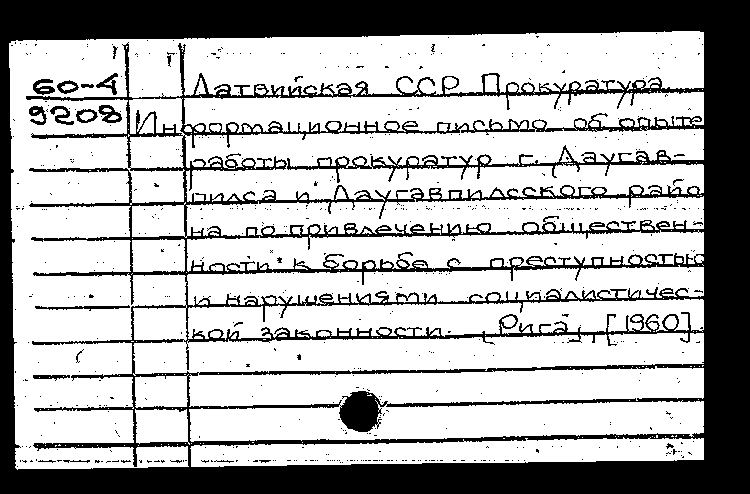 60-4 Латвийская ССР Прокуратура.
9208 Информационное письмо об опыте
работы прокуратур г. Даугав-
пилса и Даугавпилсского райо
на по привлечению обществен-
ности к борьбе с преступностью
и нарушениями социалистичес-
кой законности. [Рига], [1960].